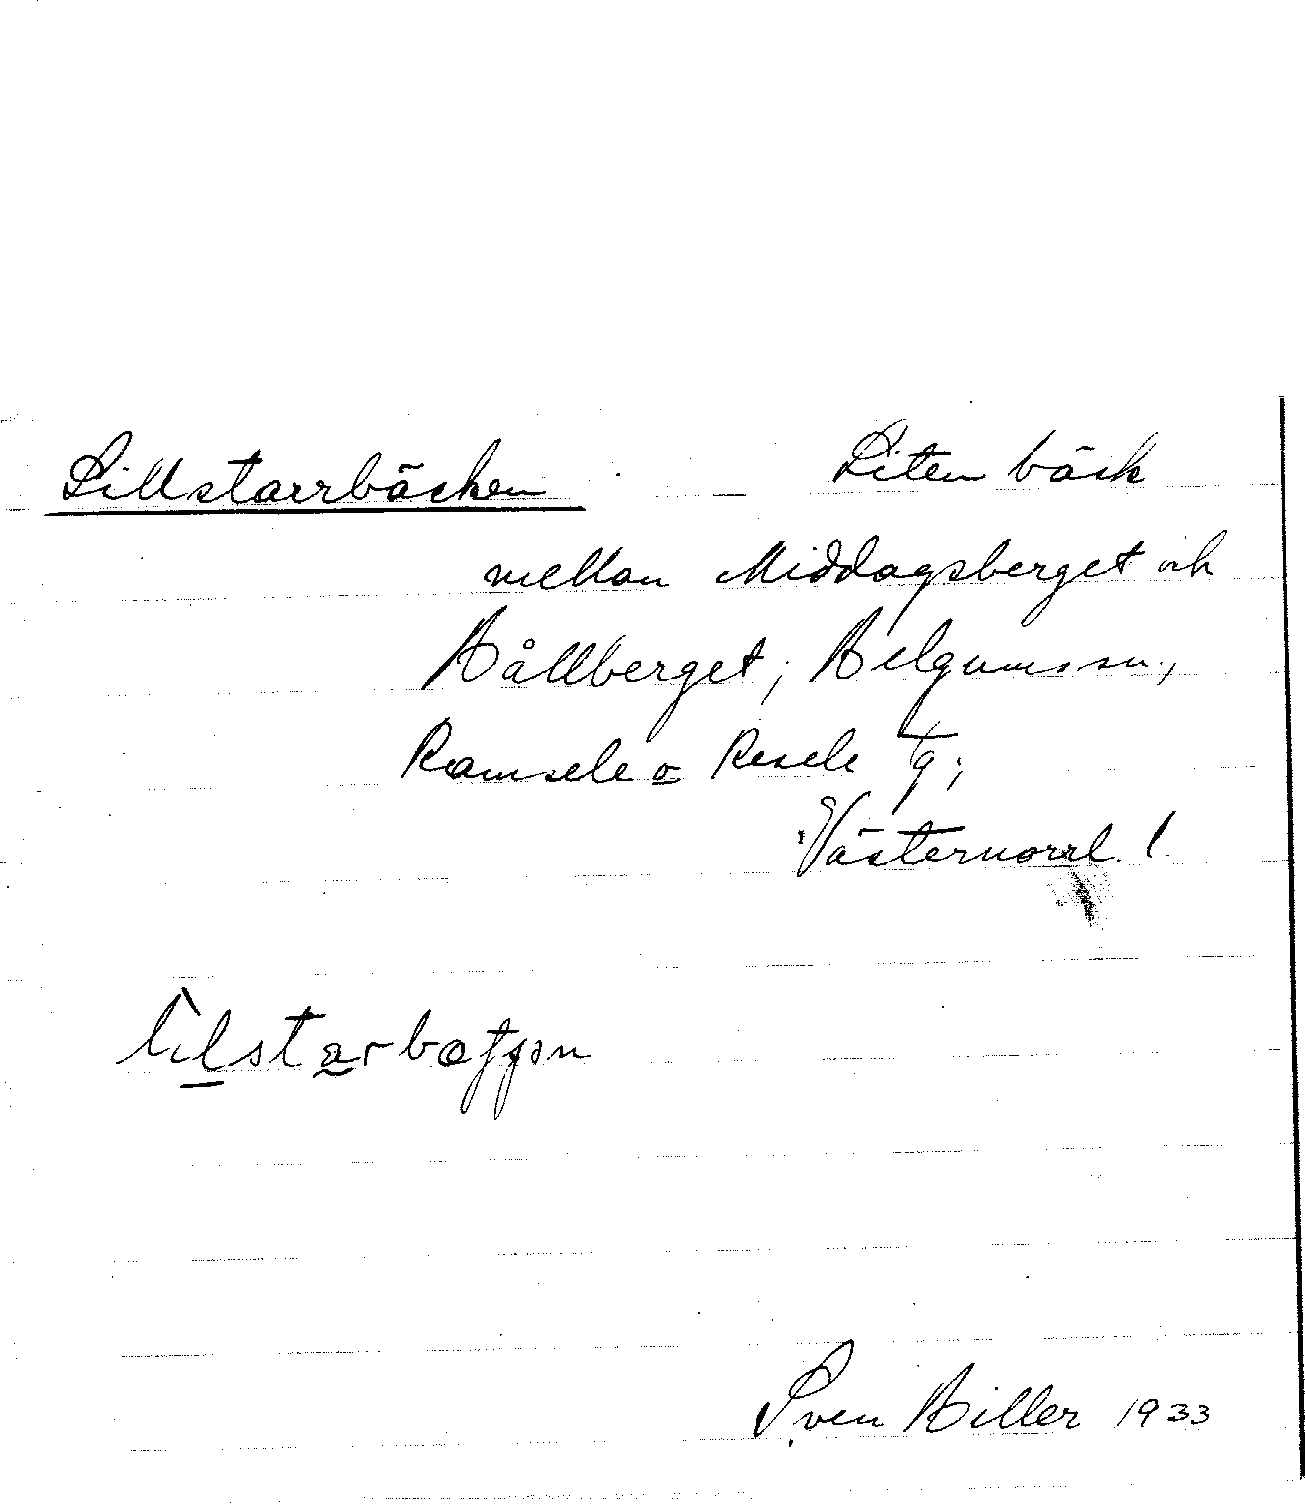 Lillstarrbäcken Liten bäck
mellan Middagsberget och
Hållberget, Helgumssn.,
Ramsele o Resele tg;
Västernorrl. l
Sven Hiller 1933